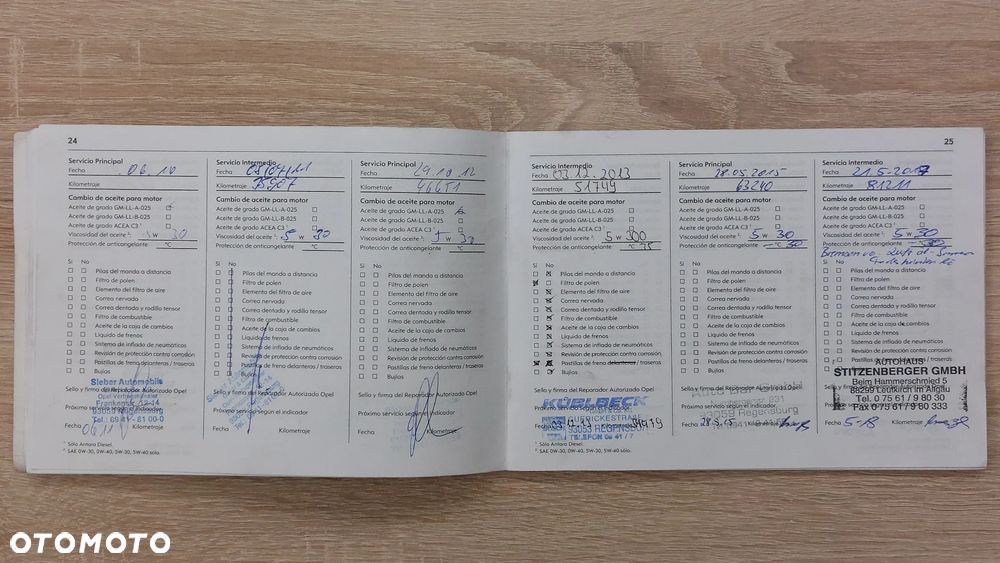 24
Servicio Principal
Fecha 06.10
Kilometraje
Cambio de aceite para motor
Aceite de grado GM-LL-A-025
Aceite de grado GM-LL-B-025
Aceite grado ACEA C3
Viscosidad del aceite ²: W 30
Protección de anticongelante °C
Sí No
Pilas del mando a distancia
Filtro de polen
Elemento del filtro de aire
Correa nervada
Correa dentada y rodillo tensor
Filtro de combustible
Aceite de la caja de cambios
Líquido de frenos
Sistema de inflado de neumáticos
Revisión de protección contra corrosión
Pastillas de freno delanteras / traseras
Bujías
Sello y firma del Reparador Autorizado Opel
Sieber Automobile
Próximo servicio según el indicador
Fecha Kilometraje
¹ Sólo Antara Diesel.
² SAE 0W-30, 0W-40, 5W-30, 5W-40 sólo.
Servicio Intermedio
Fecha
Kilometraje
Cambio de aceite para motor
Aceite de grado GM-LL-A-025
Aceite de grado GM-LL-B-025
Aceite grado ACEA C3
Viscosidad del aceite ²: 5 W 30
Protección de anticongelante °C
Sí No
Pilas del mando a distancia
Filtro de polen
Elemento del filtro de aire
Correa nervada
Correa dentada y rodillo tensor
Filtro de combustible
Aceite de la caja de cambios
Líquido de frenos
Sistema de inflado de neumáticos
Revisión de protección contra corrosión
Pastillas de freno delanteras / traseras
Bujías
Sello y firma del Reparador Autorizado Opel
Próximo servicio según el indicador
Fecha Kilometraje
Servicio Principal
Fecha 29.10.12
Kilometraje 46651
Cambio de aceite para motor
Aceite de grado GM-LL-A-025
Aceite de grado GM-LL-B-025
Aceite grado ACEA C3
Viscosidad del aceite ²: 5 W 30
Protección de anticongelante °C
Sí No
Pilas del mando a distancia
Filtro de polen
Elemento del filtro de aire
Correa nervada
Correa dentada y rodillo tensor
Filtro de combustible
Aceite de la caja de cambios
Líquido de frenos
Sistema de inflado de neumáticos
Revisión de protección contra corrosión
Pastillas de freno delanteras / traseras
Bujías
Sello y firma del Reparador Autorizado Opel
Próximo servicio según el indicador
Fecha Kilometraje
25
Servicio Intermedio
Fecha 03.12.2013
Kilometraje 51749
Cambio de aceite para motor
Aceite de grado GM-LL-A-025
Aceite de grado GM-LL-B-025
Aceite grado ACEA C3
Viscosidad del aceite ²: 5 W 30
Protección de anticongelante °C
Sí No
Pilas del mando a distancia
Filtro de polen
Elemento del filtro de aire
Correa nervada
Correa dentada y rodillo tensor
Filtro de combustible
Aceite de la caja de cambios
Líquido de frenos
Sistema de inflado de neumáticos
Revisión de protección contra corrosión
Pastillas de freno delanteras / traseras
Bujías
Sello y firma del Reparador Autorizado Opel
KÜBLBECK
Próximo servicio según el indicador
93053 REGENSBURG
Fecha Kilometraje
Servicio Principal
Fecha 28.05.2015
Kilometraje 63240
Cambio de aceite para motor
Aceite de grado GM-LL-A-025
Aceite de grado GM-LL-B-025
Aceite grado ACEA C3
Viscosidad del aceite ²: 5 W 30
Protección de anticongelante - 30 °C
Sí No
Pilas del mando a distancia
Filtro de polen
Elemento del filtro de aire
Correa nervada
Correa dentada y rodillo tensor
Filtro de combustible
Aceite de la caja de cambios
Líquido de frenos
Sistema de inflado de neumáticos
Revisión de protección contra corrosión
Pastillas de freno delanteras / traseras
Bujías
Sello y firma del Reparador Autorizado Opel
Próximo servicio según el indicador
93059 Regensburg
Fecha 28.5.15 Kilometraje
Servicio Intermedio
Fecha 21.5.2017
Kilometraje 81211
Cambio de aceite para motor
Aceite de grado GM-LL-A-025
Aceite de grado GM-LL-B-025
Aceite grado ACEA C3
Viscosidad del aceite ²: 5 W 30
Protección de anticongelante
Sí No
Pilas del mando a distancia
Filtro de polen
Elemento del filtro de aire
Correa nervada
Correa dentada y rodillo tensor
Filtro de combustible
Aceite de la caja de cambios
Líquido de frenos
Sistema de inflado de neumáticos
Revisión de protección contra corrosión
Pastillas de freno delanteras / traseras
Bujías
AUTOHAUS
STITZENBERGER GMBH
Beim Hammerschmied 5
88299 Leutkirch im Allgäu
Tel. 0 75 61 / 9 80 30
Fax 0 75 61 / 9 80 333
Fecha 5-18 Kilometraje
OTOMOTO